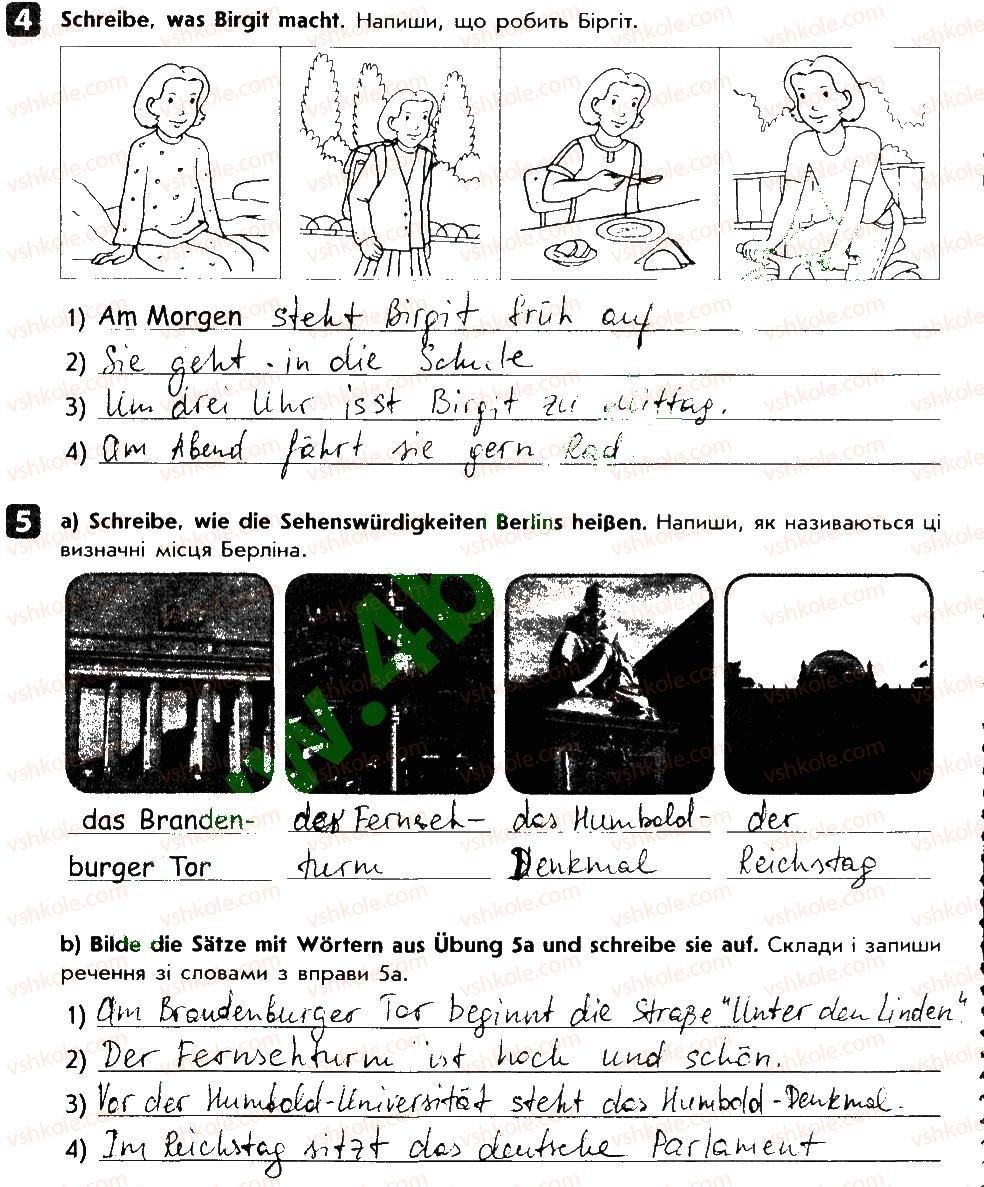 4 Schreibe, was Birgit macht. Напиши, що робить Біргіт.
1) Am Morgen steht Birgit früh auf
2) Sie geht in die Schule
3) Um drei Uhr isst Birgit zu Mittag.
4) Am Abend fährt sie gern Rad
5 a) Schreibe, wie die Sehenswürdigkeiten Berlins heißen. Напиши, як називаються ці
визначні місця Берліна.
w.4b
das Branden- der Fernseh- das Humbold- der
burger Tor turm Denkmal Reichstag
b) Bilde die Sätze mit Wörtern aus Übung 5a und schreibe sie auf. Склади і запиши
речення зі словами з вправи 5а.
1) Am Brandenburger Tor beginnt die Straße "Unter den Linden".
2) Der Fernsehturm ist hoch und schön.
3) Vor der Humbold-Universität steht das Humbold-Denkmal.
4) Im Reichstag sitzt das deutsche Parlament
vshkole.com